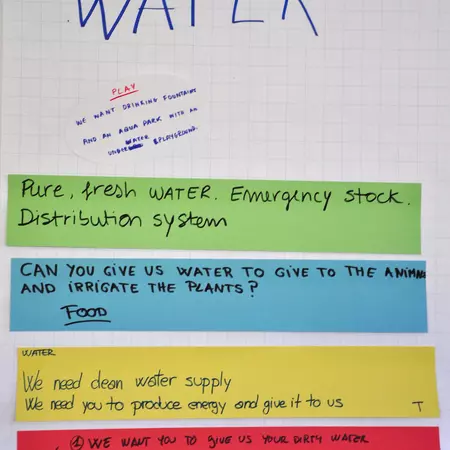 WATER
PLAY
WE WANT DRINKING FOUNTAINS
AND AN AQUA PARK WITH AN
UNDERWATER PLAYGROUND.
Pure, fresh WATER. Emergency stock.
Distribution system
CAN YOU GIVE US WATER TO GIVE TO THE ANIMA
AND IRRIGATE THE PLANTS?
FOOD
WATER
We need clean water supply
We need you to produce energy and give it to us
T
① WE WANT YOU TO GIVE US YOUR DIRTY WATER